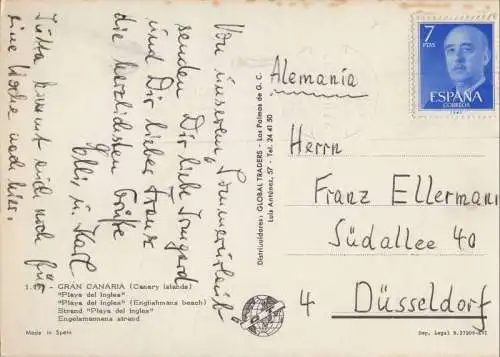 Von unserem "Sommerurlaub"
senden Dir liebe Irmgard
und Dir lieber Franz
die herzlichsten Grüße
Elli u. Karl
Jutta kommt auch noch für
eine Woche nach hier.
GRAN CANARIA (Canary Islands)
"Playa del Ingles"
"Playa del Ingles" (Englishmans beach)
Strand "Playa del Ingles"
Engelsmannens strand
Made in Spain
Distribuidores: GLOBAL TRADERS - Las Palmas de G. C.
Luis Antúnez, 57 - Tel. 24 41 50
Alemania
7
PTAS
ESPAÑA
CORREOS
Herrn
Franz Ellermann
Südallee 40
4 Düsseldorf
Dep. Legal B.